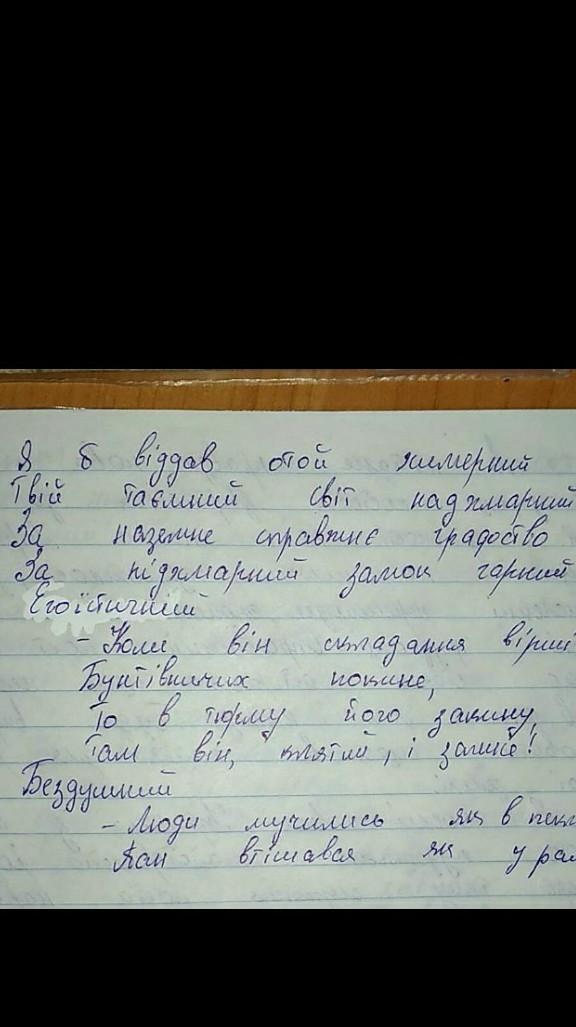 Я б віддав отой химерний
Твій таємний світ надхмарний
За наземне справжнє градоство
За підхмарний замок гарний
Егоїстичний
- Коли він складання вірші
Бунтівничих покине,
То в тюрму його закину,
Там він, клятий, і загине!
Бездушний
- Люди мучились як в пекл
Хан втішався як у раю